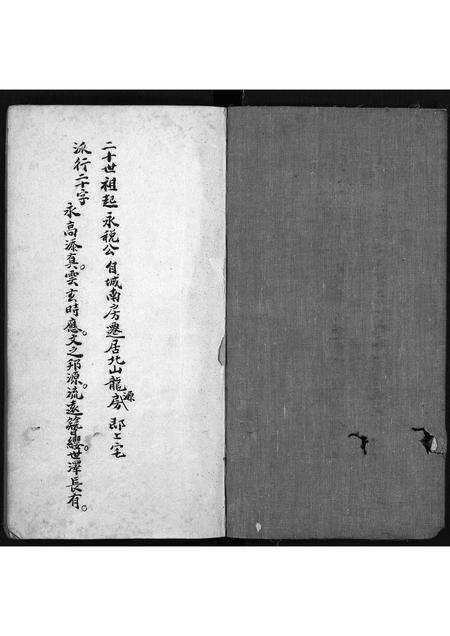 二十世祖起永税公自城南房遷居北山龍源房即上宅
派行二十字
永高添真。雲玄時應。文之邦源。流遠簪纓。世澤長有。